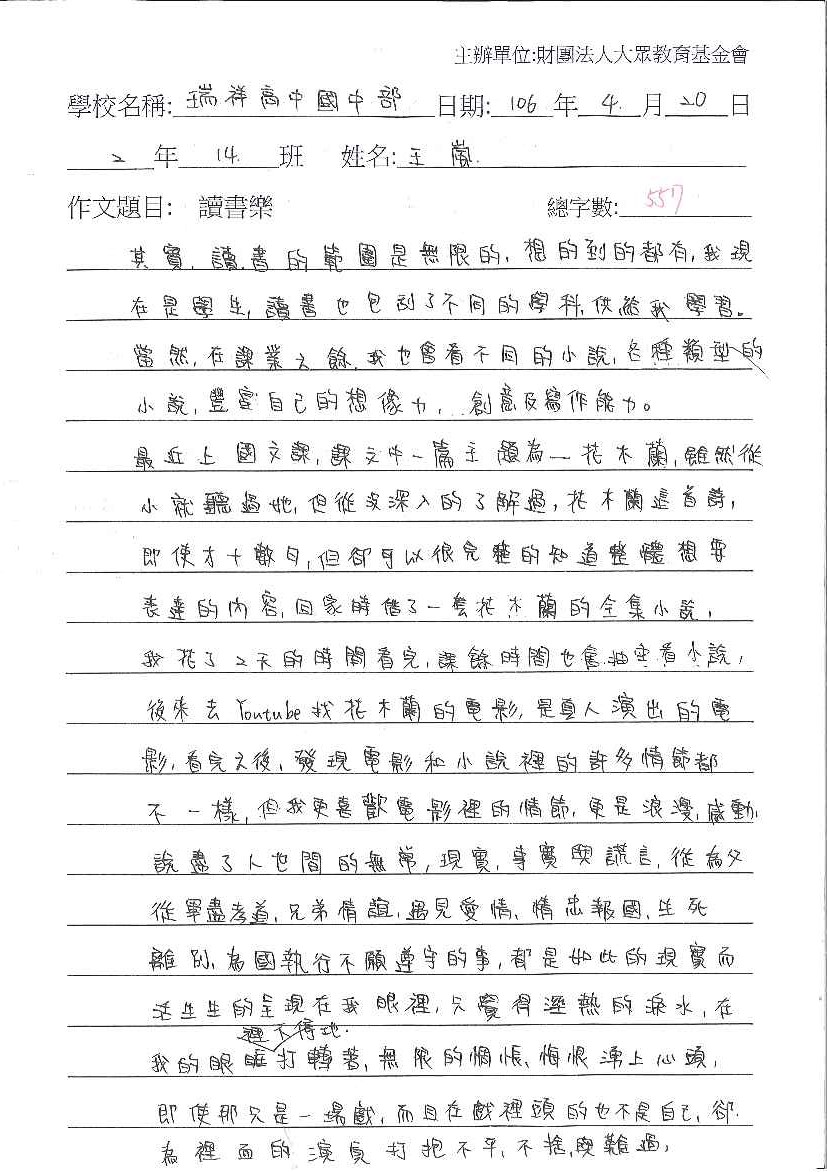 主辦單位:財團法人大眾教育基金會
學校名稱: 瑞祥高中國中部 日期: 106 年 4 月 20 日
2 年 14 班 姓名: 王嵐
作文題目: 讀書樂 總字數: 557
其實,讀書的範圍是無限的,想的到的都有,我現
在是學生,讀書也包刮了不同的學科,供給我學習。
當然,在課業之餘,我也會看不同的小說,各種類型的
小說,豐富自己的想像力,創意及寫作能力。
最近上國文課,課文中一篇主題為一花木蘭,雖然從
小就聽過她,但從沒深入的了解過,花木蘭這首詩,
即使才十數句,但卻可以很完整的知道整體想要
表達的內容,回家時借了一套花木蘭的全集小說,
我花了2天的時間看完,課餘時間也會抽空看小說,
後來去Youtube找花木蘭的電影,是真人演出的電
影,看完之後,發現電影和小說裡的許多情節都
不一樣,但我更喜歡電影裡的情節,更是浪漫,感動,
說盡了人世間的無常,現實,事實與謊言,從為父
從軍盡孝道,兄弟情誼,遇見愛情、情忠報國,生死
離別,為國執行不願遵守的事,都是如此的現實而
活生生的呈現在我眼裡,只覺得溼熱的淚水,在
我的眼眶逕不得地打轉著,無限的惆悵、悔恨湧上心頭,
即使那只是一場戲,而且在戲裡頭的也不是自己,卻
為裡面的演員打抱不平,不捨,與難過,